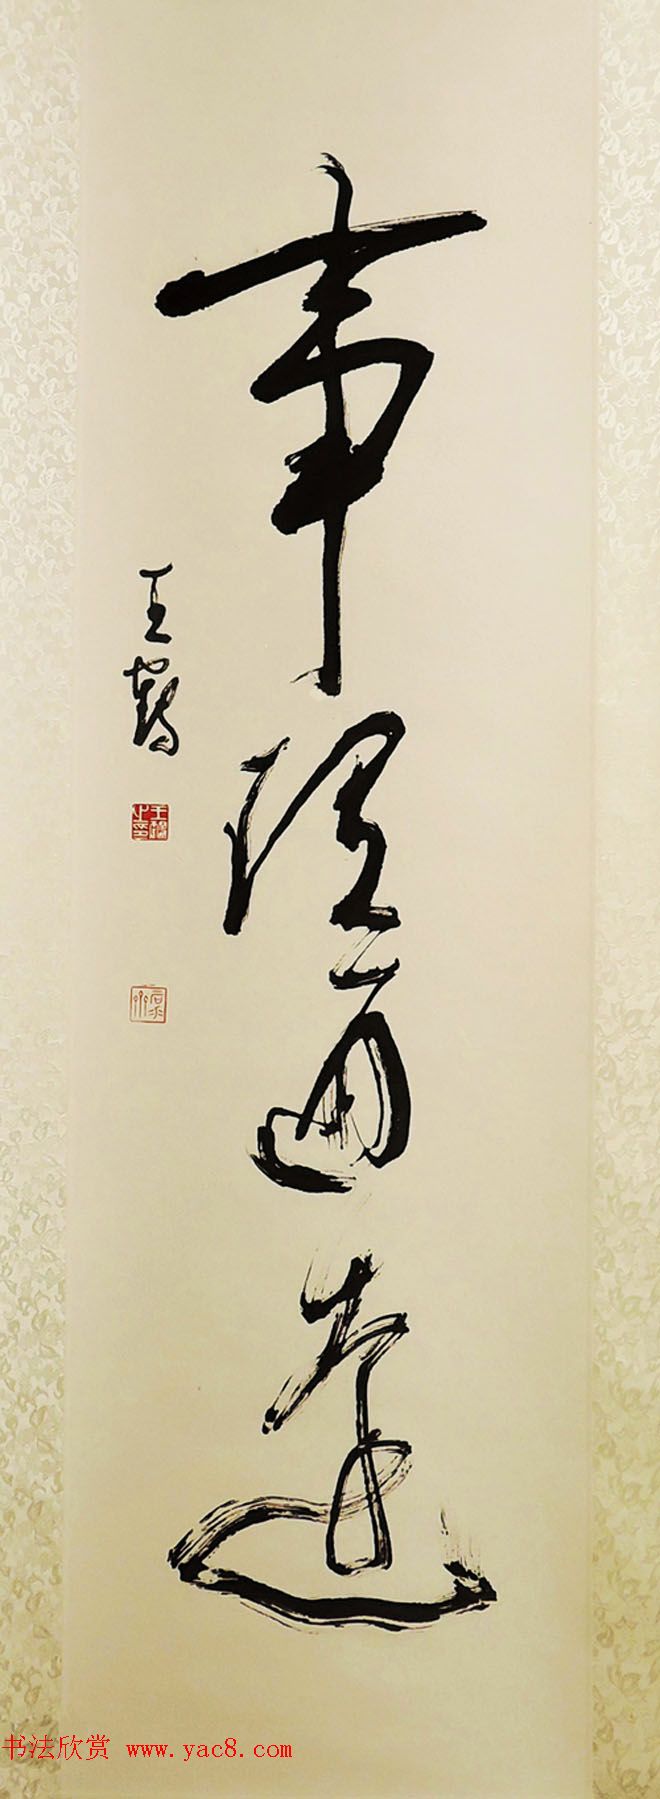 事理通達
王鶴
王鶴之印
书法欣赏 www.yac8.com